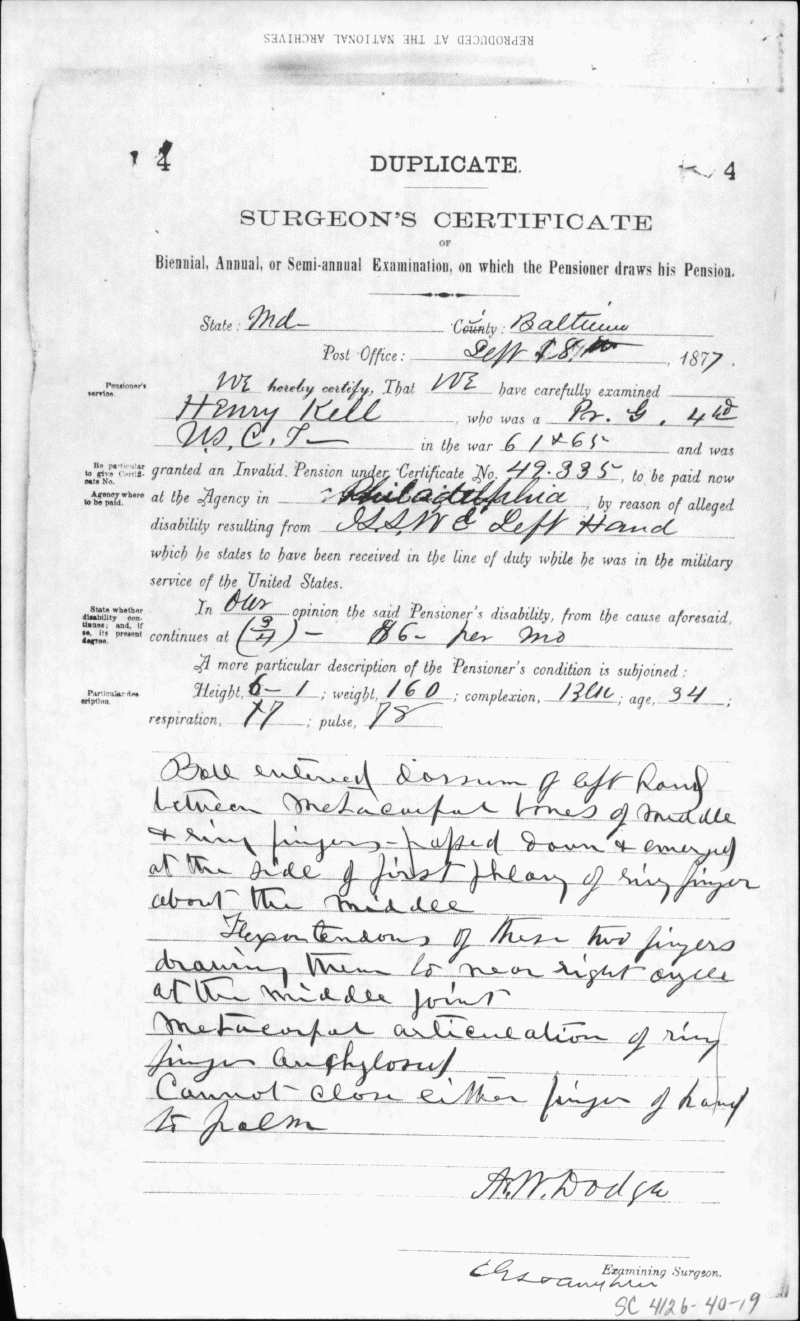 REPRODUCED AT THE NATIONAL ARCHIVES
4 DUPLICATE. 4
SURGEON'S CERTIFICATE
OF
Biennial, Annual, or Semi-annual Examination, on which the Pensioner draws his Pension.
State: Md County: Baltimore
Post Office: Sept 18th, 1877.
Pensioner's service.
We hereby certify, That We have carefully examined
Henry Kell, who was a Pr. G. 4
U.S.C.T in the war 61 & 65 and was
Be particular to give Certificate No.
granted an Invalid Pension under Certificate No. 49.335, to be paid now
Agency where to be paid.
at the Agency in Philadelphia, by reason of alleged
disability resulting from G.S.W Left Hand
which he states to have been received in the line of duty while he was in the military
service of the United States.
State whether disability continues; and, if so, its present degree.
In our opinion the said Pensioner's disability, from the cause aforesaid,
continues at (3/4) – $6– per mo
A more particular description of the Pensioner's condition is subjoined:
Particular description.
Height, 6–1; weight, 160; complexion, Blk; age, 34;
respiration, 17; pulse, 78
Ball entered dorsum of left hand
between metacarpal bones of middle
& ring fingers – passed down & emerged
at the side of first phlanx of ring finger
about the middle
tendons of these two fingers
drawing them to near right angle
at the middle joint
metacarpal articulation of ring
finger anchylosed
Cannot close either finger of hand
to palm
A.W. Dodge
Examining Surgeon.
SC 4126-40-19